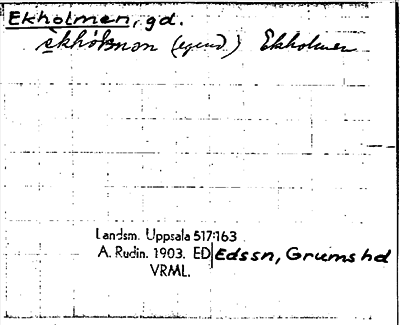 Ekholmen, gd.
èkhólmən (egend) Ekholmen
Landsm. Uppsala 517:163
A. Rudin. 1903. ED Edssn, Grums hd
VRML.